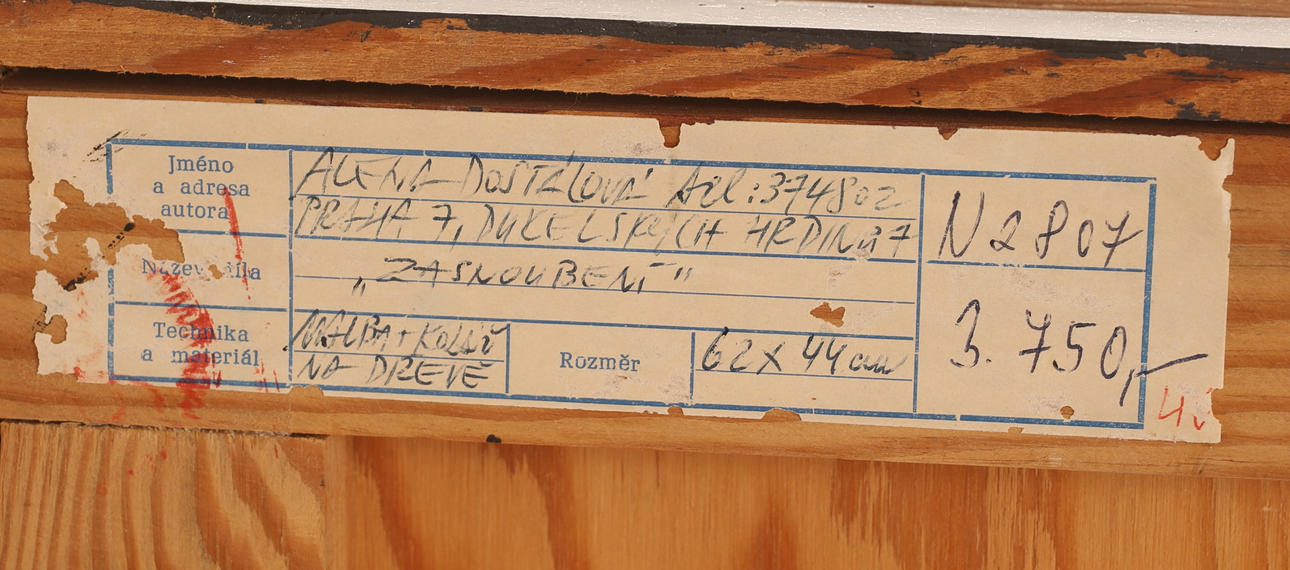 Jméno
a adresa
autora
ALENA DOSTÁLOVÁ tel: 374802
PRAHA 7, DUKELSKÝCH HRDINŮ 7
Název díla
„ZASNOUBENÍ"
Technika
a materiál
MALBA + KOLÁŽ
NA DŘEVĚ
Rozměr
62 x 44 cm
N 2807
3.750,-